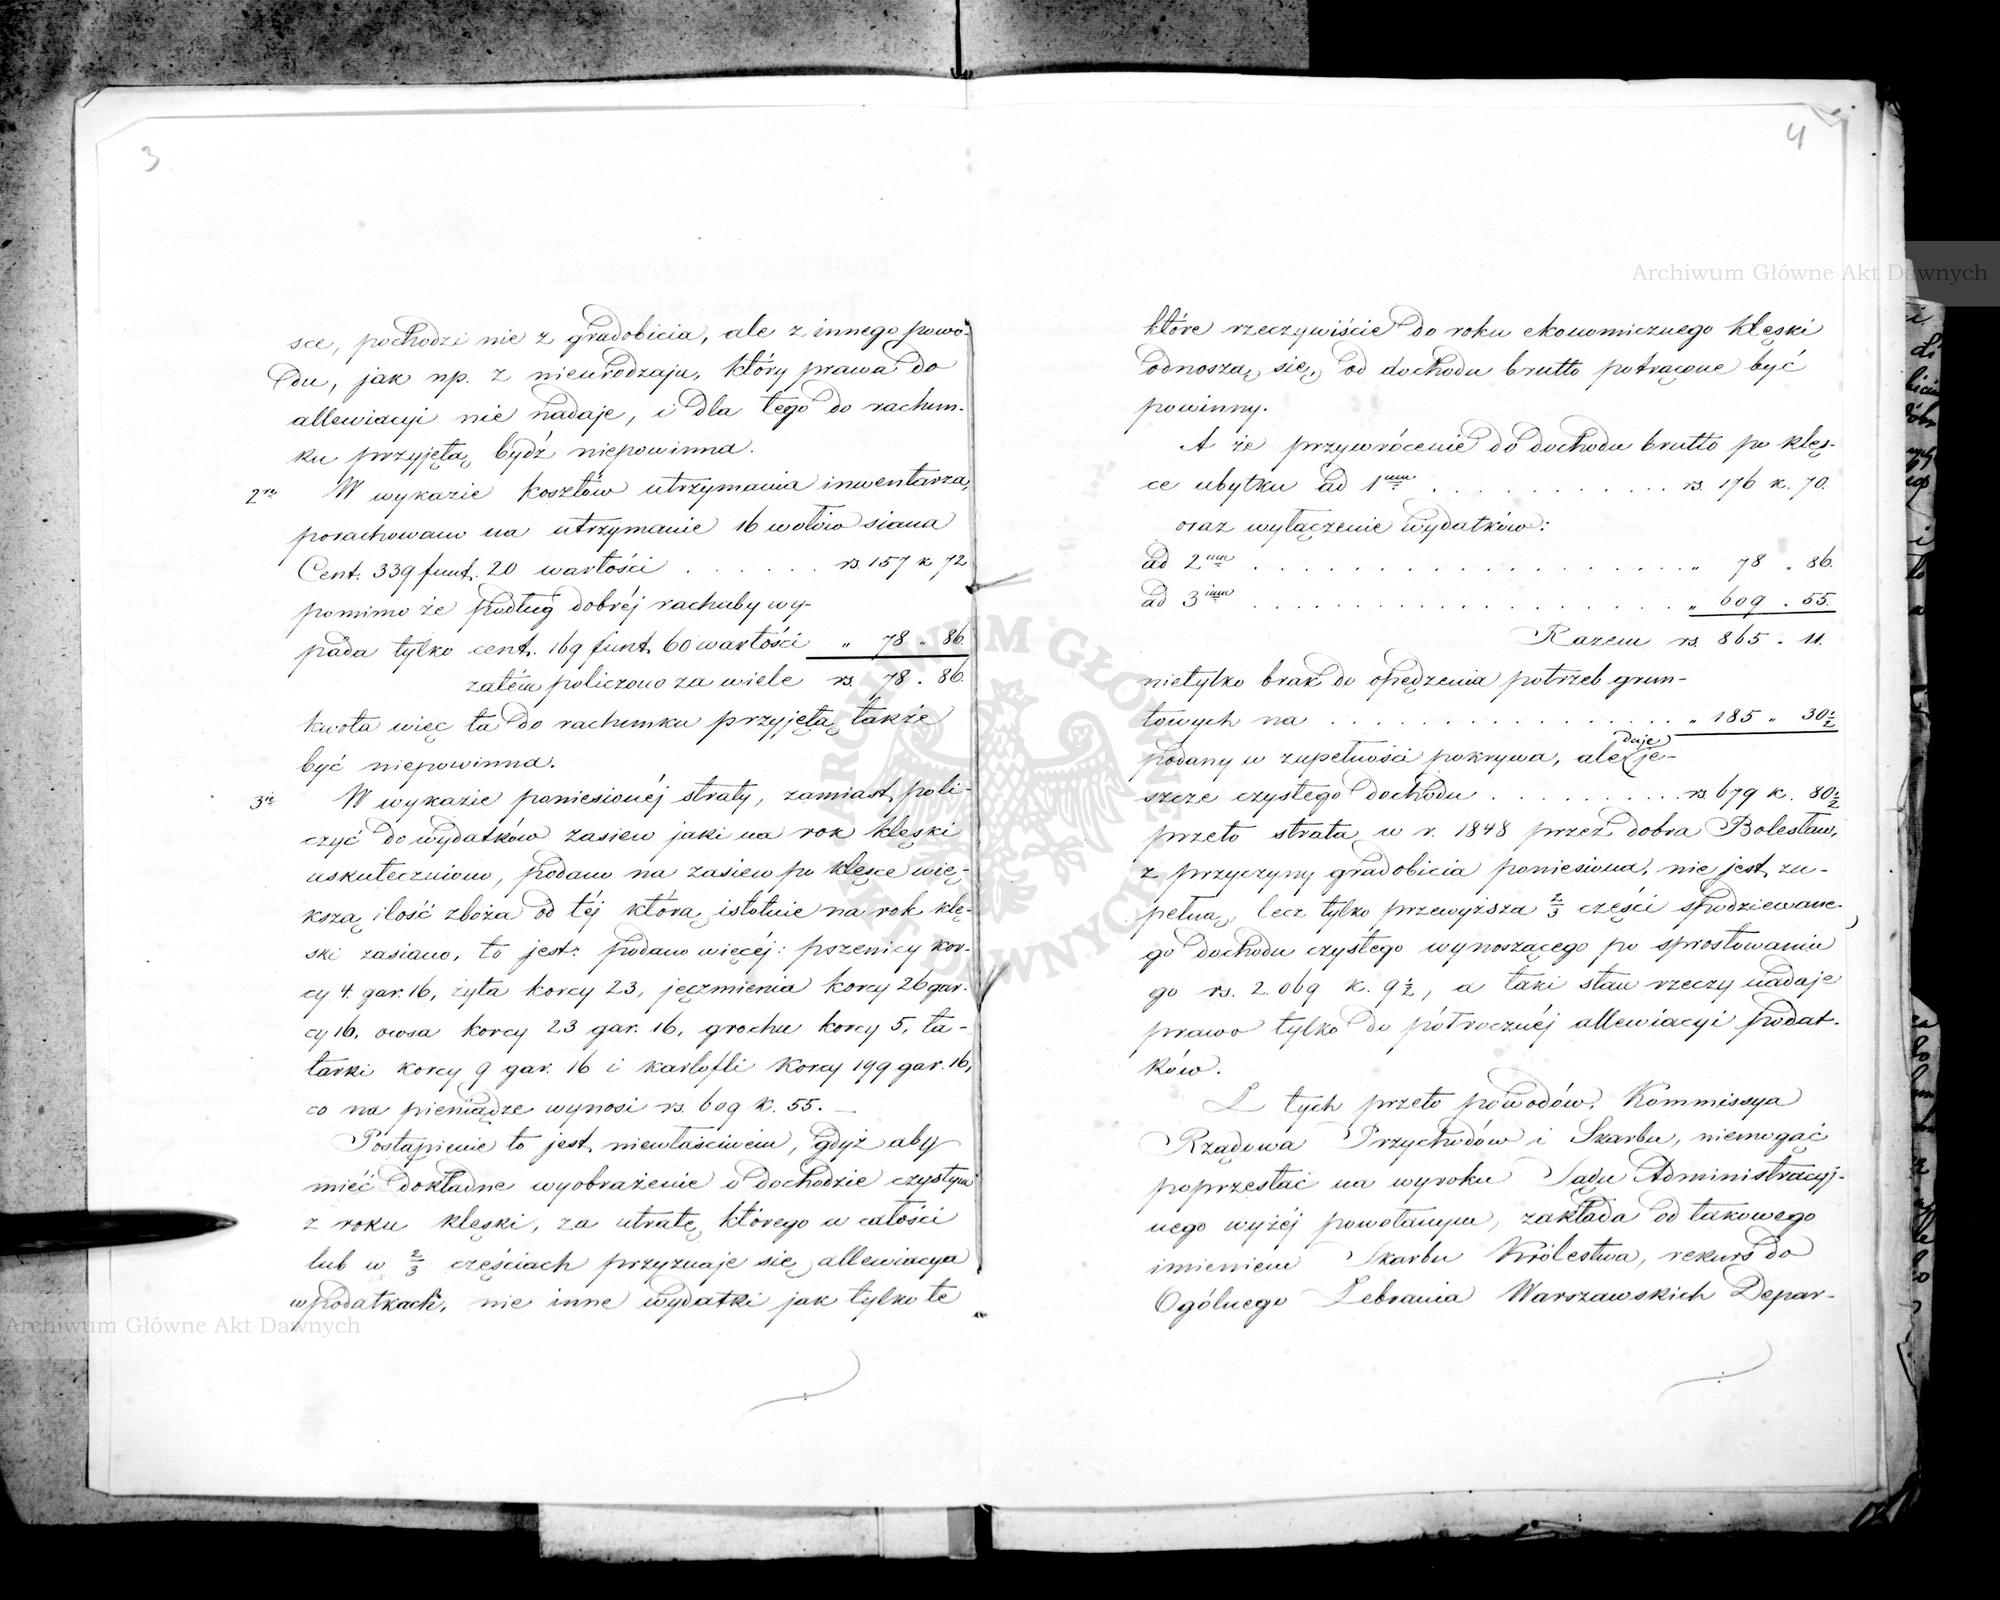 3
sce, pochodzi nie z gradobicia, ale z innego powo-
du, jak np. z nieurodzaju, który prawa do
allewiacyi nie nadaje, i dla tego do rachun-
ku przyjętą bydź niepowinna.
2re W wykazie kosztów utrzymania inwentarza,
porachowano na utrzymanie 16 wołów siana
Cent. 339 funt. 20 wartości . . . . . . rs. 157 k 72
pomimo że podług dobréj rachuby wy-
pada tylko cent. 169 funt. 60 wartości „ 78 „ 86.
zatém policzono za wiele rs. 78 . 86.
kwota więc ta do rachunku przyjętą także
być niepowinna.
3ie W wykazie poniesionéj straty, zamiast poli-
czyć do wydatków zasiew jaki na rok klęski
uskuteczniono, podano na zasiew po klęsce wię-
kszą ilość zboża od téj którą istotnie na rok klę-
ski zasiano, to jest: podano więcéj: pszenicy kor-
cy 4. gar. 16, żyta korcy 23, jęczmienia korcy 26 gar.
cy 16, owsa korcy 23 gar. 16, grochu korcy 5, ta-
tarki korcy 9 gar. 16 i kartofli korcy 199 gar. 16,
co na pieniądze wynosi rs. 609 k. 55. —
Postąpienie to jest niewłaściwém, gdyż aby
mieć dokładne wyobrażenie o dochodzie czystym
z roku klęski, za utratę którego w całości
lub w 2/3 częściach przyznaje się allewiacya
w podatkach, nie inne wydatki jak tylko te
4
które rzeczywiście do roku ekonomicznego klęski
odnoszą się, od dochodu brutto potrącone być
powinny.
A że przywrócenie do dochodu brutto po klęs-
ce ubytku ad 1mm . . . . . . . . . . . rs. 176 k. 70.
oraz wyłączenie wydatków:
ad 2um . . . . . . . . . . . . . . . . . . . „ 78 „ 86.
ad 3ium . . . . . . . . . . . . . . . . . . . „ 609 . 55.
Razem rs. 865 . 11.
nietylko brak do opędzenia potrzeb grun-
towych na . . . . . . . . . . . . . . . . „ 185 „ 30 1/2
podany w zupełności pokrywa, ale daje je-
szcze czystego dochodu . . . . . . . . . . rs. 679 k. 80 1/2
przeto strata w r. 1848 przez dobra Bolesław,
z przyczyny gradobicia poniesiona, nie jest zu-
pełną, lecz tylko przewyższa 2/3 części spodziewane-
go dochodu czystego wynoszącego po sprostowaniu
go rs. 2.069 k. 9 1/2, a taki stan rzeczy nadaje
prawo tylko do półrocznéj allewiacyi podat-
ków.
Z tych przeto powodów, Kommissya
Rządowa Przychodów i Skarbu, niemogąć
poprzestać na wyroku Sądu Administracyj-
nego wyżéj powołanym, zakłada od takowego
imieniem Skarbu Królestwa, rekurs do
Ogólnego Zebrania Warszawskich Depar-
Archiwum Główne Akt Dawnych
ARCHIWUM GŁÓWNE AKT DAWNYCH
Archiwum Główne Akt Dawnych